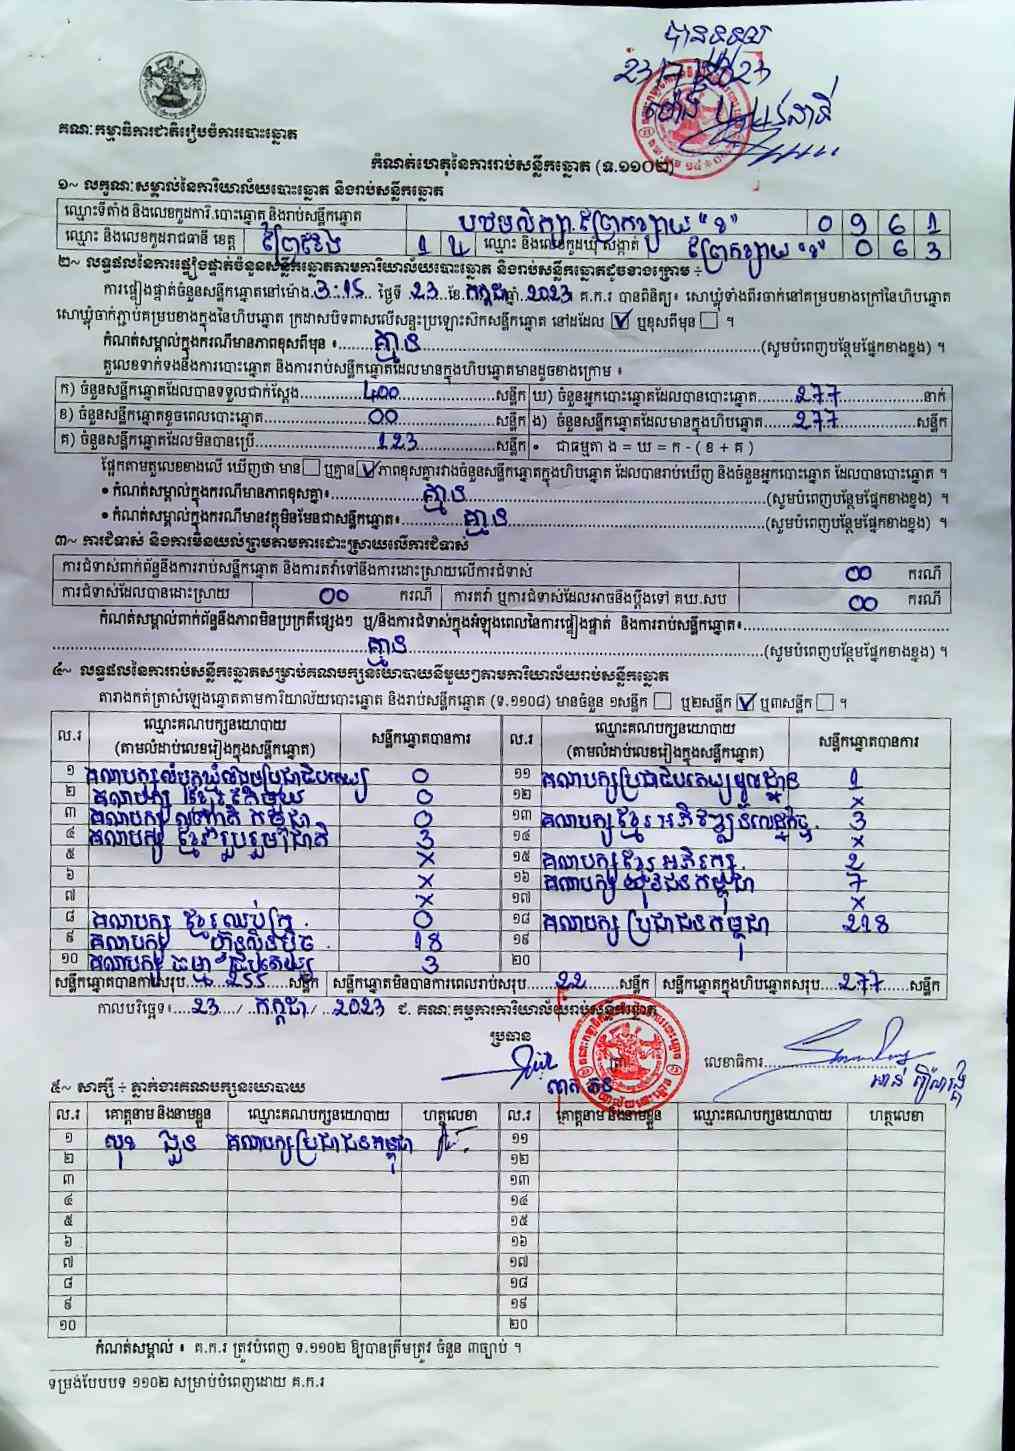 បានទទួល
23/7/2023
ម៉ោង
គណៈកម្មាធិការជាតិរៀបចំការបោះឆ្នោត
កំណត់ហេតុនៃការរាប់សន្លឹកឆ្នោត (ទ.១១០២)
១~ លក្ខណៈសម្គាល់នៃការិយាល័យបោះឆ្នោត និងរាប់សន្លឹកឆ្នោត
ឈ្មោះទីតាំង និងលេខកូដការិ.បោះឆ្នោត និងរាប់សន្លឹកឆ្នោត បឋមសិក្សា ព្រែកខ្សាយ "ខ" 0 9 6 1
ឈ្មោះ និងលេខកូដរាជធានី ខេត្ត ព្រៃវែង 1 4 ឈ្មោះ និងលេខកូដឃុំ សង្កាត់ ព្រែកខ្សាយ "ខ" 0 6 3
២~ លទ្ធផលនៃការផ្ទៀងផ្ទាត់ចំនួនសន្លឹកឆ្នោតតាមការិយាល័យបោះឆ្នោត និងរាប់សន្លឹកឆ្នោតដូចខាងក្រោម ÷
ការផ្ទៀងផ្ទាត់ចំនួនសន្លឹកឆ្នោតនៅម៉ោង 3:15 ថ្ងៃទី 23 ខែ កក្កដា ឆ្នាំ 2023 គ.ក.រ បានពិនិត្យ៖ សោឃ្លុំទាំងពីរចាក់នៅគម្របខាងក្រៅនៃហិបឆ្នោត
សោឃ្លុំចាក់ភ្ជាប់គម្របខាងក្នុងនៃហិបឆ្នោត ក្រដាសបិទពាសលើសន្ទះប្រឡោះសិកសន្លឹកឆ្នោត នៅដដែល ☑ ឬខុសពីមុន ☐ ។
កំណត់សម្គាល់ក្នុងករណីមានភាពខុសពីមុន ៖ គ្មាន (សូមបំពេញបន្ថែមផ្នែកខាងខ្នង) ។
តួលេខទាក់ទងនឹងការបោះឆ្នោត និងការរាប់សន្លឹកឆ្នោតដែលមានក្នុងហិបឆ្នោតមានដូចខាងក្រោម ៖
ក) ចំនួនសន្លឹកឆ្នោតដែលបានទទួលជាក់ស្តែង 400 សន្លឹក ឃ) ចំនួនអ្នកបោះឆ្នោតដែលបានបោះឆ្នោត 277 នាក់
ខ) ចំនួនសន្លឹកឆ្នោតខូចពេលបោះឆ្នោត 00 សន្លឹក ង) ចំនួនសន្លឹកឆ្នោតដែលមានក្នុងហិបឆ្នោត 277 សន្លឹក
គ) ចំនួនសន្លឹកឆ្នោតដែលមិនបានប្រើ 123 សន្លឹក • ជាធម្មតា ង = ឃ = ក - ( ខ + គ )
ផ្អែកតាមតួលេខខាងលើ ឃើញថា មាន ☐ ឬគ្មាន ☑ ភាពខុសគ្នារវាងចំនួនសន្លឹកឆ្នោតក្នុងហិបឆ្នោត ដែលបានរាប់ឃើញ និងចំនួនអ្នកបោះឆ្នោត ដែលបានបោះឆ្នោត ។
• កំណត់សម្គាល់ក្នុងករណីមានភាពខុសគ្នា៖ គ្មាន (សូមបំពេញបន្ថែមផ្នែកខាងខ្នង) ។
• កំណត់សម្គាល់ក្នុងករណីមានវត្ថុមិនមែនជាសន្លឹកឆ្នោត៖ គ្មាន (សូមបំពេញបន្ថែមផ្នែកខាងខ្នង) ។
៣~ ការជំទាស់ និងការមិនយល់ព្រមតាមការដោះស្រាយលើការជំទាស់
ការជំទាស់ពាក់ព័ន្ធនឹងការរាប់សន្លឹកឆ្នោត និងការតវ៉ាទៅនឹងការដោះស្រាយលើការជំទាស់ 00 ករណី
ការជំទាស់ដែលបានដោះស្រាយ 00 ករណី ការតវ៉ា ឬការជំទាស់ដែលអាចនឹងប្តឹងទៅ គឃ.សប 00 ករណី
កំណត់សម្គាល់ពាក់ព័ន្ធនឹងភាពមិនប្រក្រតីផ្សេងៗ ឬ/និងការជំទាស់ក្នុងអំឡុងពេលនៃការផ្ទៀងផ្ទាត់ និងការរាប់សន្លឹកឆ្នោត៖
គ្មាន (សូមបំពេញបន្ថែមផ្នែកខាងខ្នង) ។
៤~ លទ្ធផលនៃការរាប់សន្លឹកឆ្នោតសម្រាប់គណបក្សនយោបាយនីមួយៗតាមការិយាល័យរាប់សន្លឹកឆ្នោត
តារាងកត់ត្រាសំឡេងឆ្នោតតាមការិយាល័យបោះឆ្នោត និងរាប់សន្លឹកឆ្នោត (ទ.១១០៨) មានចំនួន ១សន្លឹក ☐ ឬ២សន្លឹក ☑ ឬ៣សន្លឹក ☐ ។
ល.រ ឈ្មោះគណបក្សនយោបាយ (តាមលំដាប់លេខរៀងក្នុងសន្លឹកឆ្នោត) សន្លឹកឆ្នោតបានការ ល.រ ឈ្មោះគណបក្សនយោបាយ (តាមលំដាប់លេខរៀងក្នុងសន្លឹកឆ្នោត) សន្លឹកឆ្នោតបានការ
១ គណបក្សសំបុកឃ្មុំសង្គមប្រជាធិបតេយ្យ 0 ១១ គណបក្សប្រជាធិបតេយ្យមូលដ្ឋាន 1
២ គណបក្ស ខ្មែរតែមួយ 0 ១២ x
៣ គណបក្ស កម្ពុជា 0 ១៣ គណបក្សខ្មែរអភិវឌ្ឍន៍សេដ្ឋកិច្ច 3
៤ គណបក្ស ខ្មែររួបរួមជាតិ 3 ១៤ x
៥ x ១៥ គណបក្សខ្មែរអភិរក្ស 2
៦ x ១៦ គណបក្ស យុវជនកម្ពុជា 7
៧ x ១៧ x
៨ គណបក្ស ខ្មែរឈប់ក្រ 0 ១៨ គណបក្ស ប្រជាជនកម្ពុជា 218
៩ គណបក្ស ហ៊្វុនស៊ិនប៉ិច 18 ១៩
១០ គណបក្ស ធម្មាធិបតេយ្យ 3 ២០
សន្លឹកឆ្នោតបានការសរុប 255 សន្លឹក សន្លឹកឆ្នោតមិនបានការពេលរាប់សរុប 22 សន្លឹក សន្លឹកឆ្នោតក្នុងហិបឆ្នោតសរុប 277 សន្លឹក
កាលបរិច្ឆេទ៖ 23 / កក្កដា / 2023 ជ. គណៈកម្មការការិយាល័យរាប់សន្លឹកឆ្នោត
ប្រធាន
លេខាធិការ
៥~ សាក្សី ÷ ភ្នាក់ងារគណបក្សនយោបាយ
ល.រ គោត្តនាម និងនាមខ្លួន ឈ្មោះគណបក្សនយោបាយ ហត្ថលេខា ល.រ គោត្តនាម និងនាមខ្លួន ឈ្មោះគណបក្សនយោបាយ ហត្ថលេខា
១ សុខ ដួន គណបក្សប្រជាជនកម្ពុជា ១១
២ ១២
៣ ១៣
៤ ១៤
៥ ១៥
៦ ១៦
៧ ១៧
៨ ១៨
៩ ១៩
១០ ២០
កំណត់សម្គាល់ ៖ គ.ក.រ ត្រូវបំពេញ ទ.១១០២ ឱ្យបានត្រឹមត្រូវ ចំនួន ៣ច្បាប់ ។
ទម្រង់បែបបទ ១១០២ សម្រាប់បំពេញដោយ គ.ក.រ